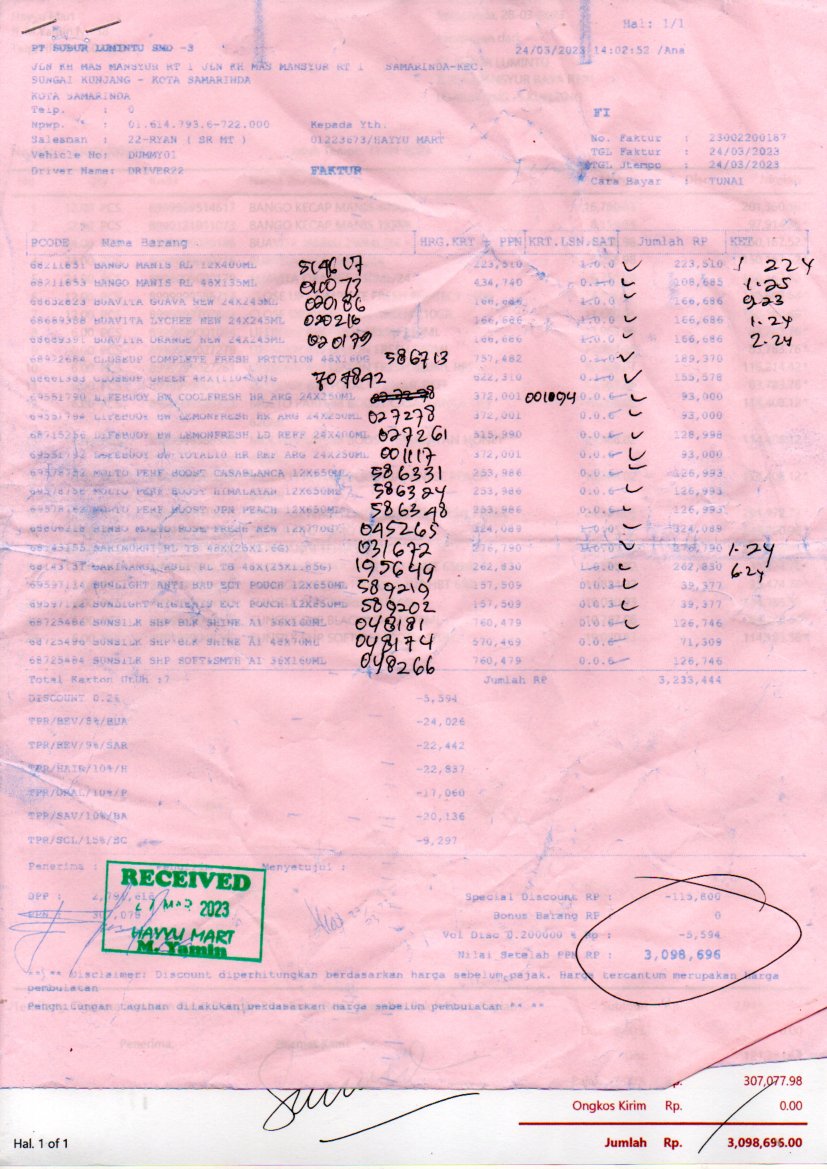 Hal: 1/1
PT SUBUR LUMINTU SMD -3
24/03/2023 14:02:52 /Ana
JLN KH MAS MANSYUR RT 1 JLN KH MAS MANSYUR RT 1 SAMARINDA-KEC.
SUNGAI KUNJANG - KOTA SAMARINDA
KOTA SAMARINDA
Telp. : 0
FI
Npwp. : 01.614.793.6-722.000 Kepada Yth.
Salesman : 22-RYAN ( SR MT ) 01223673/HAYYU MART No. Faktur : 23002200187
Vehicle No: DUMMY01 TGL Faktur : 24/03/2023
TGL Jtempo : 24/03/2023
Driver Name: DRIVER22 FAKTUR Cara Bayar : TUNAI
PCODE Nama Barang HRG.KRT PPN KRT.LSN.SAT Jumlah RP KET
68211651 BANGO MANIS RL 12X400ML 514617 223,510 1.0.0 223,510 1 224
68211653 BANGO MANIS RL 48X135ML 011073 434,740 108,685 1.25
68652823 BUAVITA GUAVA NEW 24X245ML 020186 166,686 166,686 9.23
68669388 BUAVITA LYCHEE NEW 24X245ML 020216 166,686 166,686 1.24
68669391 BUAVITA ORANGE NEW 24X245ML 020179 166,686 166,686 2.24
68922684 CLOSEUP COMPLETE FRESH PRTCTION 48X160G 586713 757,482 189,370
CLOSEUP GREEN 707842 622,310 155,578
69551790 LIFEBUOY BW COOLFRESH RR ARG 24X250ML 372,001 001094 0.0.6 93,000
LIFEBUOY BW LEMONFRESH RR ARG 24X250ML 027278 372,001 93,000
LIFEBUOY BW LEMONFRESH LD REFF 24X400ML 027261 515,990 0.0.6 128,998
LIFEBUOY BW TOTAL10 RR REF ARG 24X250ML 001117 372,001 0.0.6 93,000
MOLTO PERF BOOST CASABLANCA 12X650ML 586331 253,986 0.0.6 126,993
MOLTO PERF BOOST HIMALAYAN 12X650ML 586324 253,986 0.0.6 126,993
MOLTO PERF BOOST JPN PEACH 12X650ML 586348 253,986 0.0.6 126,993
MOLTO ROSE FRESH NEW 045265 324,089 1.0.0 324,089
SARIMURNI RL TB 48X(25X1.6G) 031672 276,790 276,790 1.24
SARIWANGI ASLI RL TB 48X(25X1.85G) 195649 262,830 262,830 624
69597114 SUNLIGHT ANTI BAU ECT POUCH 12X650ML 589219 157,509 0.0.3 39,377
SUNLIGHT HIGIENIS ECT POUCH 12X650ML 589202 157,509 0.0.3 39,377
68725486 SUNSILK SHP BLK SHINE A1 36X160ML 048181 760,479 0.0.6 126,746
68725496 SUNSILK SHP BLK SHINE A1 48X70ML 048174 570,469 0.0.6 71,309
68725484 SUNSILK SHP SOFT&SMTH A1 36X160ML 048266 760,479 0.0.6 126,746
Total Karton Utuh :7 Jumlah RP 3,233,444
DISCOUNT 0.2% -5,594
TPR/BEV/5%/BUA -24,026
TPR/BEV/9%/SAR -22,442
TPR/HAIR/10%/H -22,837
TPR/ORAL/10%/P -17,060
TPR/SAV/10%/BA -20,136
TPR/SCL/15%/BC -9,297
Penerima : Menyetujui :
RECEIVED
MAR 2023
HAYYU MART
M. Yamin
DPP : Special Discount RP : -115,800
PPN : Bonus Barang RP : 0
Vol Disc 0.200000 % Rp : -5,594
Nilai Setelah PPN RP : 3,098,696
** ** Disclaimer: Discount diperhitungkan berdasarkan harga sebelum pajak. Harga tercantum merupakan harga
pembulatan
Penghitungan tagihan dilakukan berdasarkan harga sebelum pembulatan ** **
307,077.98
Ongkos Kirim Rp. 0.00
Hal. 1 of 1 Jumlah Rp. 3,098,696.00